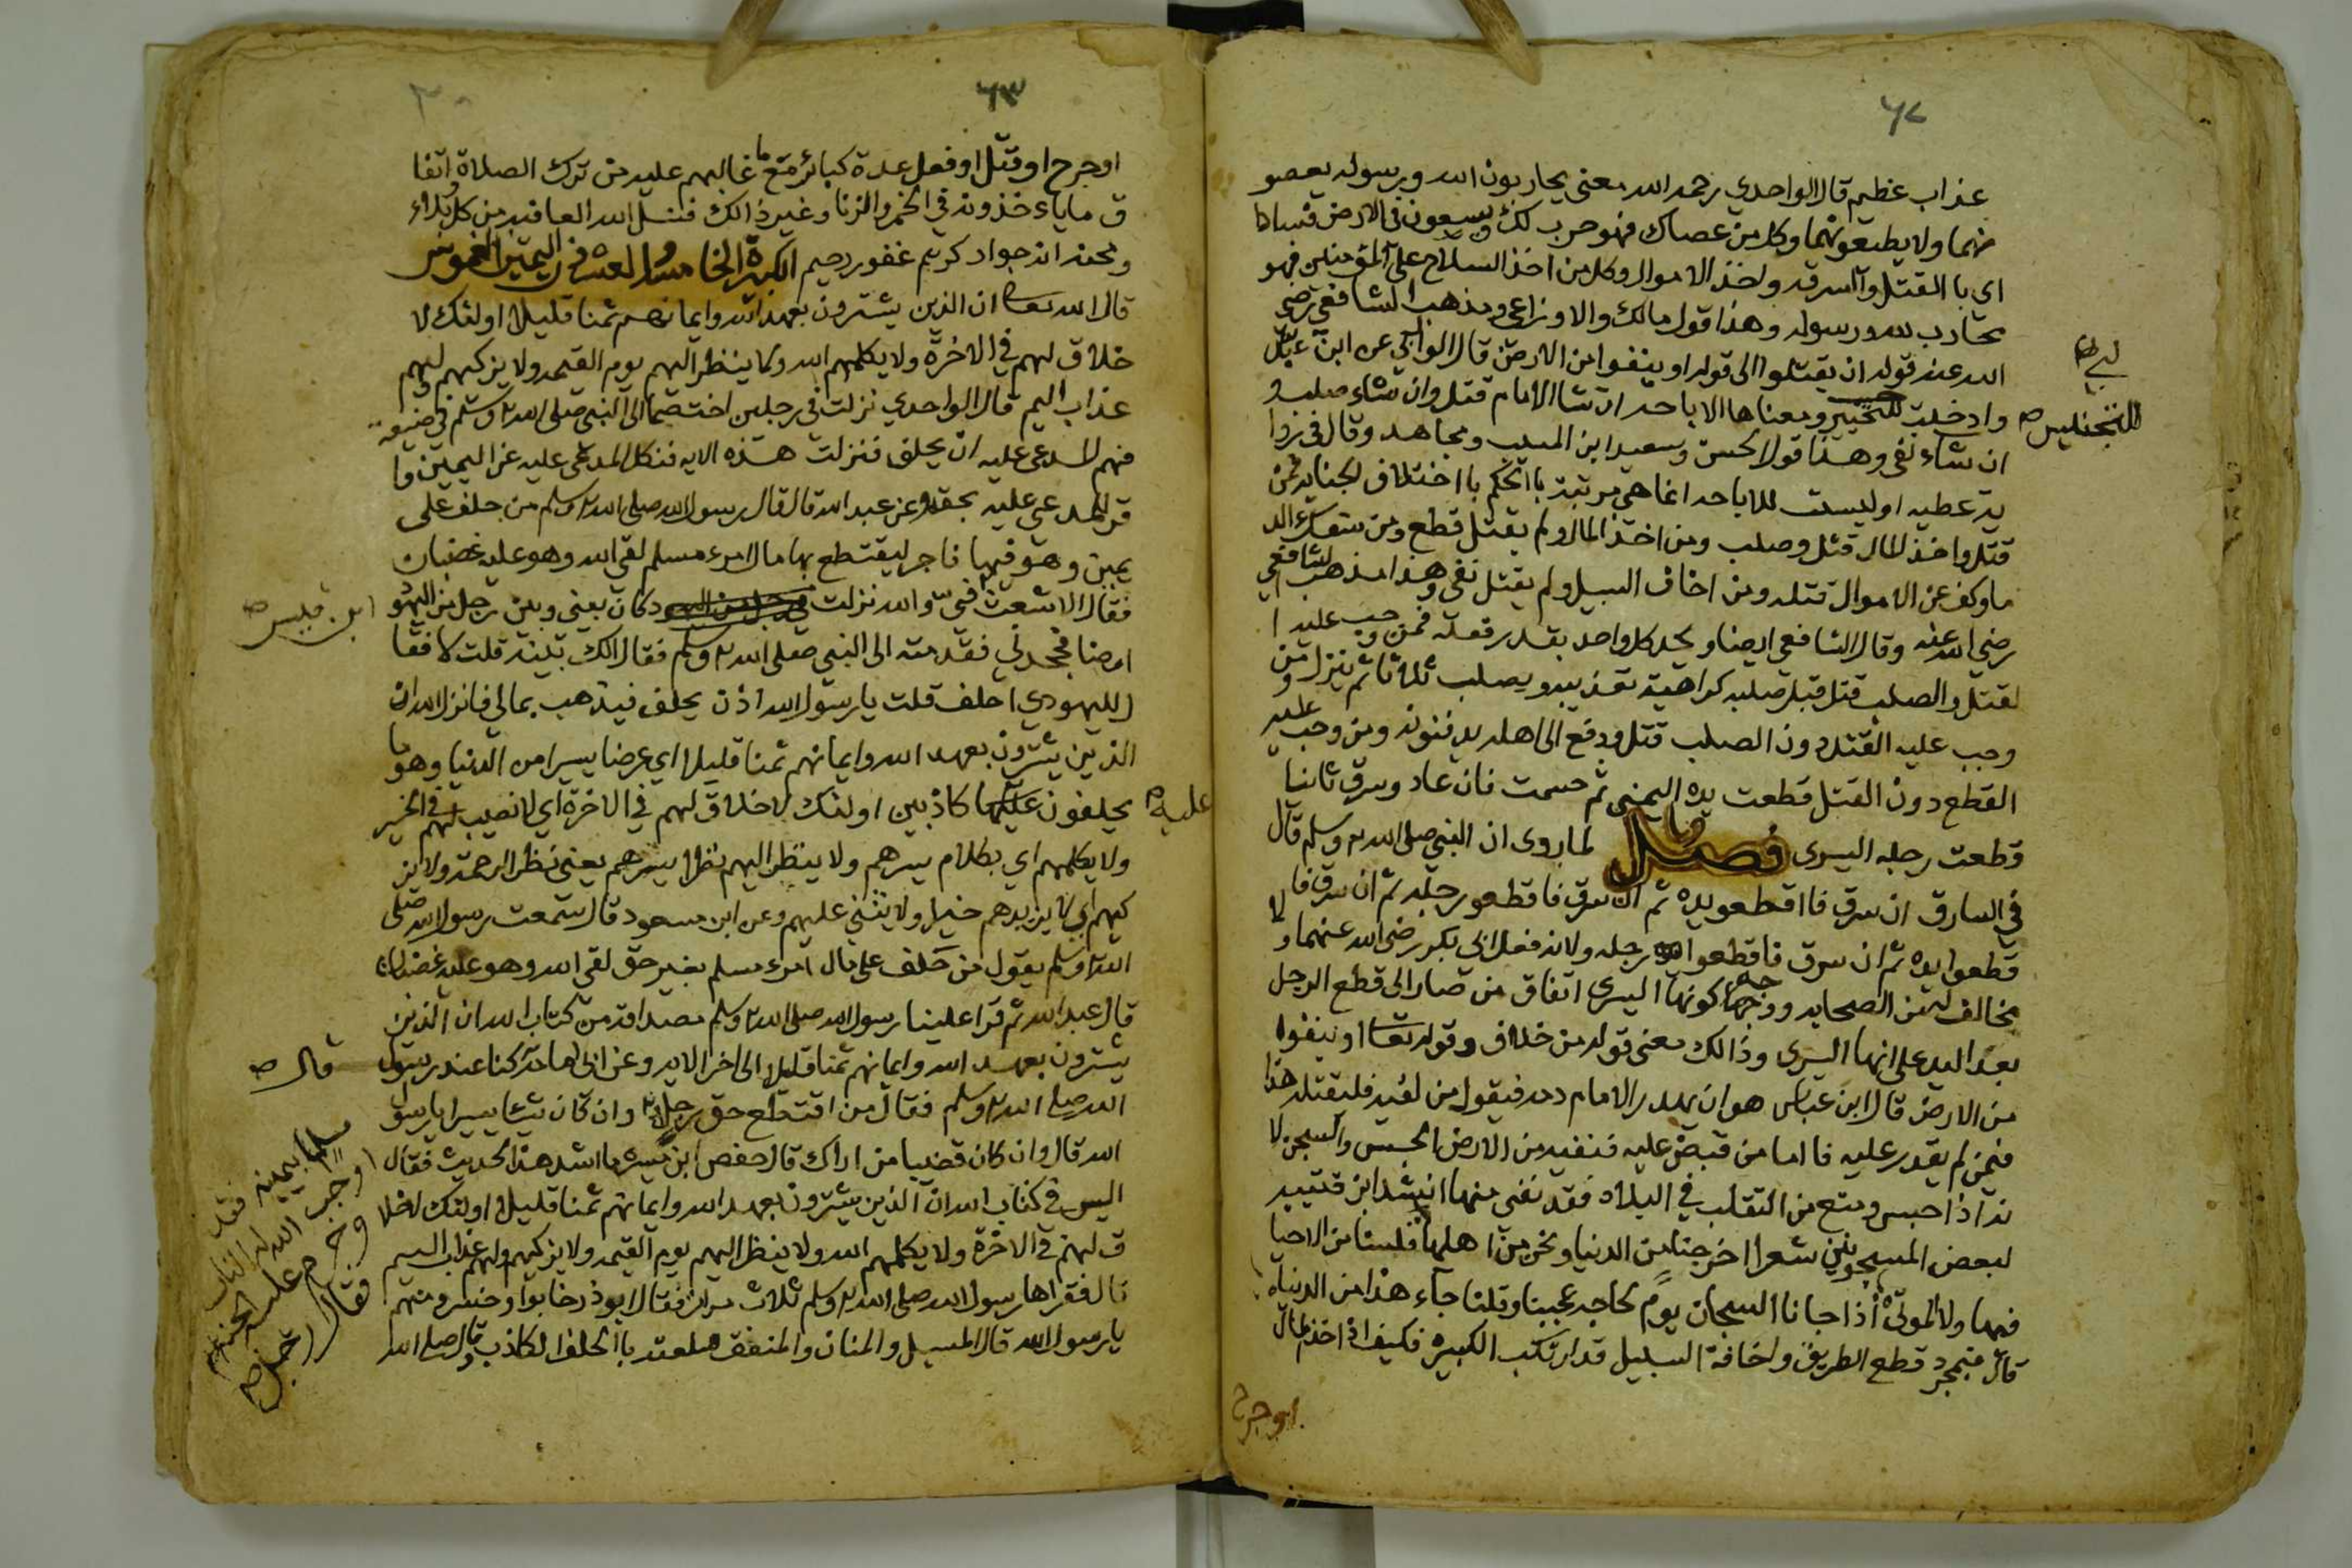 ٦٢
عذاب عظيم قال الواحدي رحمه الله معنى يحاربون الله ورسوله يعصو
نهما ولا يطيعونهما وكل من عصاك فهو حرب لك ويسعون في الارض فسادا
اي با القتل والسرقه واخذ الاموال وكل من اخذ السلاح على المؤمنين فهو
محارب لله ورسوله وهذا قول مالك والاوزاعي ومذهب الشافعي رضي
الله عنه قوله ان يقتلوا الى قوله او ينفوا من الارض قال الوالبي عن ابن عباس
وادخلت للتخيير ومعناها الاباحه ان شا الامام قتل وان شاء صلب و
ان شاء نفى وهذا قول الحسن وسعيد ابن المسيب ومجاهد وقال في روا
ية عطيه او ليست للاباحه انما هي مرتبة با الحكم با اختلاف الجنايه فمن
قتل واخذ المال قتل وصلب ومن اخذ المال ولم يقتل قطع ومن سفك الد
ما وكف عن الاموال قتله ومن اخاف السبيل ولم يقتل نفى وهذا مذهب الشافعي
رضي الله عنه وقال الشافعي ايضا ويحد كل واحد بقدر فعله فمن وجب عليه ا
لقتل والصلب قتل قبل صلبه كراهية تعذيبه ويصلب ثلاثا ثم ينزل ومن
وجب عليه القتل دون الصلب قتل ودفع الى اهله يدفنونه ومن وجب عليه
القطع دون القتل قطعت يده اليمنى ثم حسمت فان عاد وسرق ثانيا
قطعت رجله اليسرى فصل لما روى ان النبي صلى الله وسلم قال
في السارق ان سرق فا اقطعو يده ثم ان سرق فاقطعو رجله ثم ان سرق فا
قطعوا يده ثم ان سرق فاقطعوا رجله ولانه فعل ابي بكر رضي الله عنهما ولا
مخالف لهن الصحابه ووجه كونها اليسرى اتفاق من صار الى قطع الرجل
بعد اليد على انها اليسرى وذالك معنى قوله من خلاف وقوله تعا او ينفوا
من الارض قال ابن عباس هو ان يهدر الامام دمه فيقول من لقيه فليقتله هذا
فيمن لم يقدر عليه فا اما من قبض عليه فنفيه من الارض الحبس والسجن لا
نه اذا حبس ومنع من التقلب في البلاد فقد نفي منها انشد ابن قتيبه
لبعض المسجونين شعرا خرجنا من الدنيا ونحن من اهلها فلسنا من الاحيا
فيها ولا الموتى اذا جانا السجان يوم لحاجه عجبنا وقلنا جآء هذا من الدنيا
قال فبمجرد قطع الطريق واخافة السبيل قد ارتكب الكبيره فكيف اذا اخذ المال
اوجرح
٦٣
اوجرح اوقتل اوفعل عدة كبائر مع ما غالبهم عليه من ترك الصلاة وانفا
ق ماياء خذونه في الخمر والزنا وغير ذالك فنسل الله العافيه من كل بلاء
ومحنه انه جواد كريم غفور رحيم الكبيرة الخامسه والعشرون اليمين الغموس
قال الله تعا ان الذين يشترون بعهد الله وايمانهم ثمنا قليلا اولئك لا
خلاق لهم في الاخرة ولا يكلمهم الله ولا ينظر اليهم يوم القيمه ولا يزكيهم ولهم
عذاب اليم قال الواحدي نزلت في رجلين اختصما الى النبي صلى الله وسلم في ضيعة
فهم المدعى عليه ان يحلف فنزلت هذه الايه فنكل المدعى عليه عن اليمين وا
قر للمدعي عليه بحقه وعن عبد الله قال قال رسول الله صلى الله وسلم من حلف على
يمين وهو فيها فاجر ليقتطع بها مال امرء مسلم لقى الله وهو عليه غضبان
فقال الاشعث في والله نزلت كان بيني وبين رجل من اليهود
ابن قيس صح
ارضا فجحدني فقدمته الى النبي صلى الله وسلم فقال الك بينه قلت لا فقا
ل لليهودي احلف قلت يا رسول الله اذن يحلف فيذهب بمالي فانزل الله ان
الذين يشترون بعهد الله وايمانهم ثمنا قليلا اي عرضا يسيرا من الدنيا وهو ما
يحلفون عليه كاذبين اولئك لا خلاق لهم في الاخرة اي لا نصيب لهم في الخير
عليه صح
ولا يكلمهم اي بكلام يسرهم ولا ينظر اليهم نظرا يسرهم يعني نظر الرحمة ولا يز
كيهم اي لا يزيدهم خيرا ولا يثني عليهم وعن ابن مسعود قال سمعت رسول الله صلى
الله وسلم يقول من حلف على مال امرء مسلم بغير حق لقى الله وهو عليه غضبان
قال عبد الله ثم قرا علينا رسول الله صلى الله وسلم مصداقه من كتاب الله ان الذين
يشترون بعهد الله وايمانهم ثمنا قليلا الى اخر الايه وعن ابي امامه كنا عند رسول
قال صح
الله صلى الله وسلم فقال من اقتطع حق رجل وان كان شيئا يسيرا يا رسول
الله قال وان كان قضيبا من اراك قال حفص ابن ميسره ما اشد هذا الحديث فقال
اليس في كتاب الله ان الذين يشترون بعهد الله وايمانهم ثمنا قليلا اولئك لا خلا
ق لهم في الاخرة ولا يكلمهم الله ولا ينظر اليهم يوم القيمه ولا يزكيهم ولهم عذاب اليم
قال فقراها رسول الله صلى الله وسلم ثلاث مرات فقال ابو ذر خابوا وخسرو منهم
يا رسول الله قال المسبل والمنان والمنفق سلعته با الحلف الكاذب وقال صلى الله
مسلم بيمينه فقد
اوجب الله له النار
وحرم عليه الجنه
فقال رجل صح